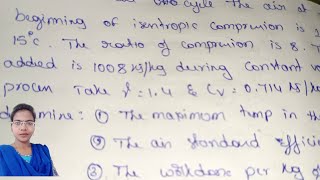 Otto cycle the air at
beginning of isentropic compression is 1
15°c. The ratio of compression is 8. T
added is 1008 kJ/kg during Constant v
process Take γ = 1.4 & Cv = 0.714 kJ/k
① The maximum temp in th
② The air standard effici
③ The workdone per kg of